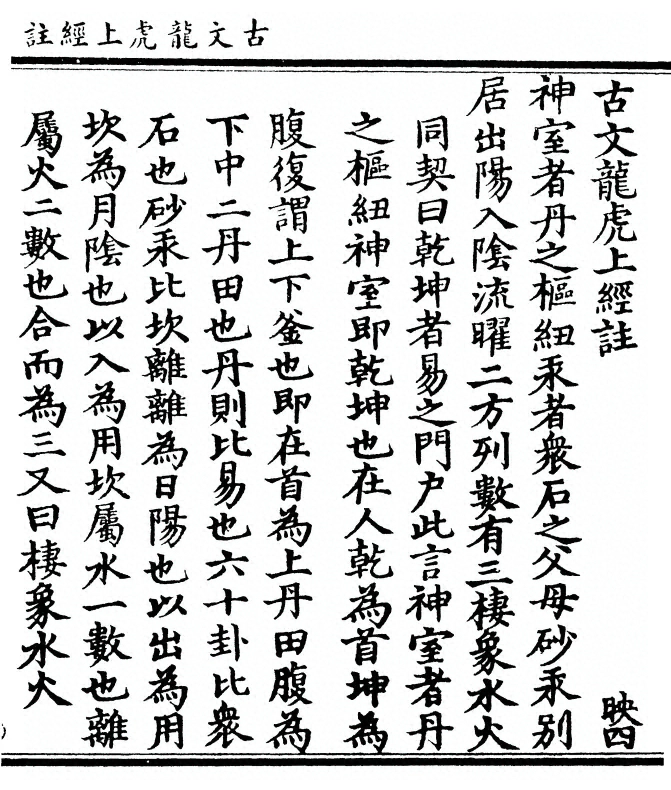 古文龍虎上經註
古文龍虎上經註
映四
神室者丹之樞紐汞者衆石之父母砂汞别
居出陽入陰流曜二方列數有三棲象水火
同契曰乾坤者易之門户此言神室者丹
之樞紐神室即乾坤也在人乾為首坤為
腹復謂上下釜也即在首為上丹田腹為
下中二丹田也丹則比易也六十卦比衆
石也砂汞比坎離離為日陽也以出為用
坎為月陰也以入為用坎屬水一數也離
屬火二數也合而為三又曰棲象水火